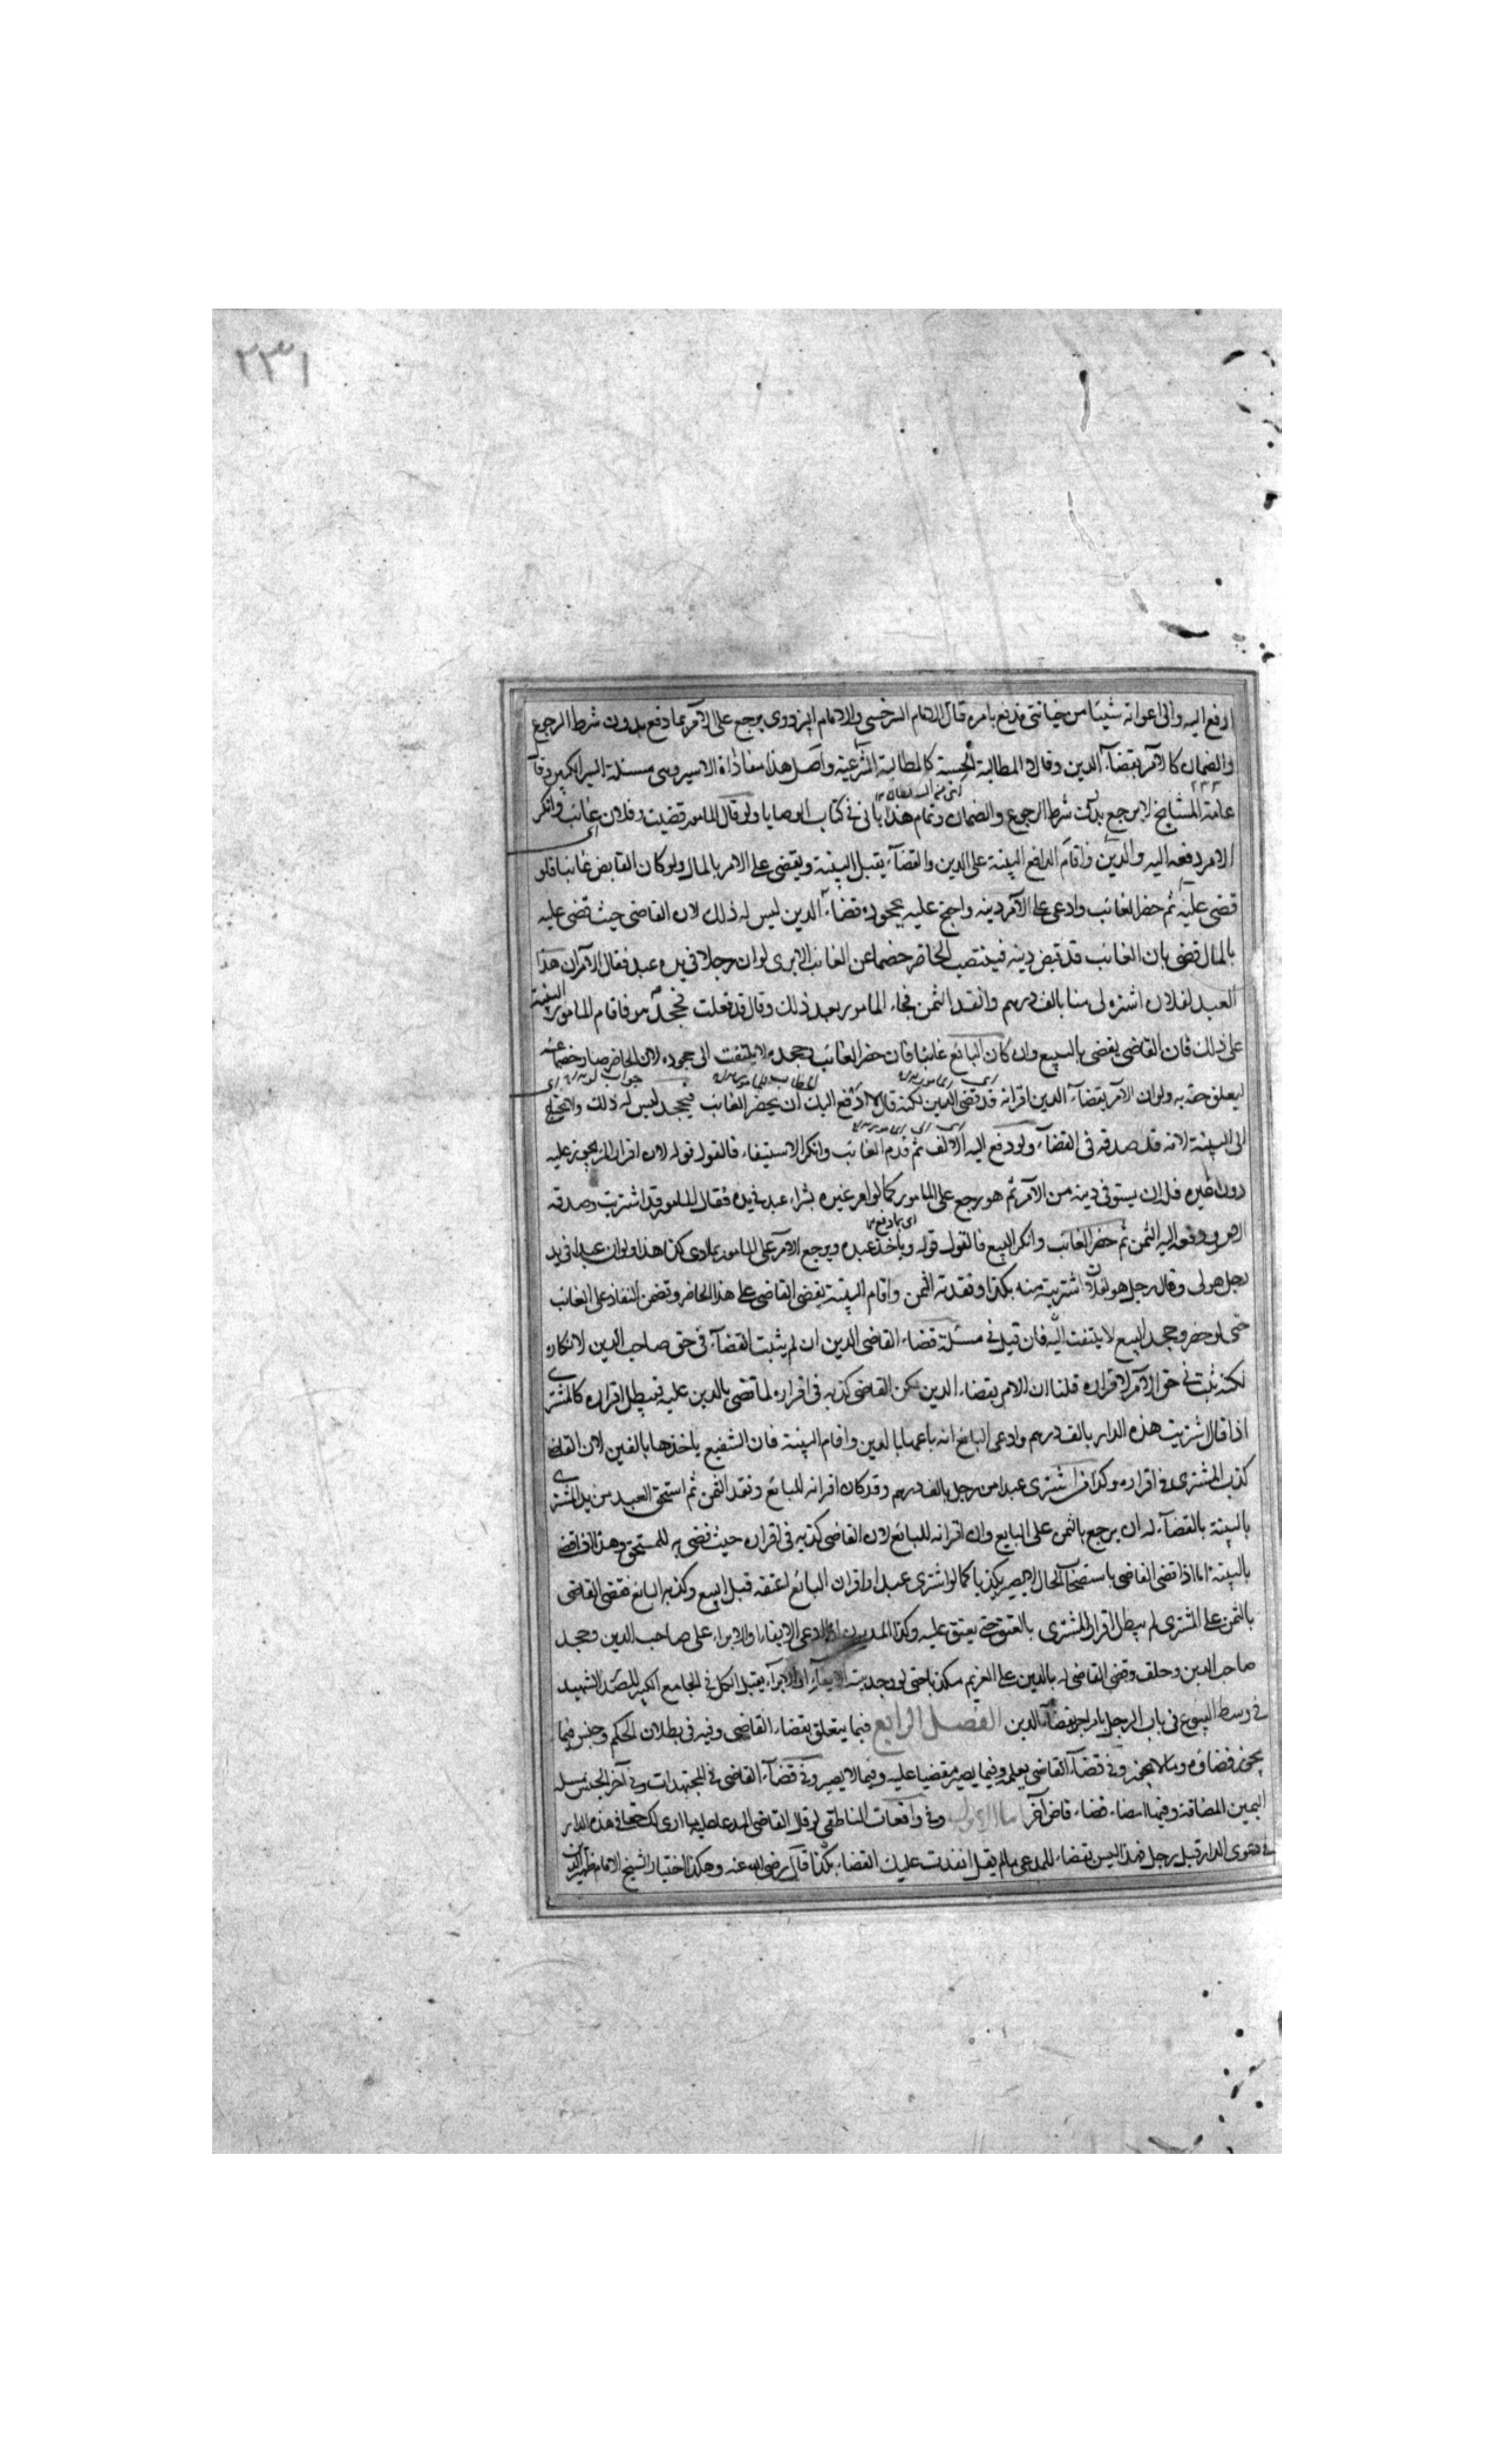 ٢٣١
ادفع اليه والى اعوانه شيئا من خيانتى فدفع بامره قال الامام السرخسى والامام البزدوى يرجع على الآمر بما دفع بدون شرط الرجوع
والضمان كالامر بقضاء الدين وقالا المطالبة الحسية كالمطالبة الشرعية واصل هذا مفاداة الاسير وهى مسئلة السير الكبير وقا
عامة المشايخ لا يرجع بدون شرط الرجوع والضمان وتمام هذا يأتى فى كتاب الوصايا ولو قال المامور قضيت وفلان غائب وانكر
الامر دفعه اليه والدين واقام الدافع البينة على الدين والقضاء يقبل البينة ويقضى على الامر بالمال ولو كان القابض غائبا فلو
قضى عليه ثم حضر الغائب وادعى على الآمر دينه واحتج عليه بجحوده قضاء الدين ليس له ذلك لان القاضى حيث قضى عليه
بالمال قضى بان الغائب قد قبض دينه فينتصب الحاضر خصما عن الغائب الا يرى لو ان رجلا فى يده عبد فقال الآمر ان هذا
العبد لفلان اشتره لى منا بالف درهم وانقد الثمن فجاء المامور بعد ذلك وقال قد فعلت فجحد هو فاقام المامور البينة
على ذلك فان القاضى يقضى بالبيع وان كان البائع غائبا فان حضر الغائب وجحده لا يلتفت الى جحوده لان الحاضر صار خصما عنه
ليعلق حقه به ولو ان الآمر بقضاء الدين اقر انه قد قضى الدين لكنه قال لا ادفع اليك ان يحضر الغائب فيجحد ليس له ذلك ولا يحتاج
الى البينة لانه قد صدقه فى القضاء ولو دفع اليه الالف ثم قدم الغائب وانكر الاستيفاء فالقول قوله لان اقرار المرء يجوز عليه
دون غيره فله ان يستوفى دينه من الآمر ثم هو يرجع على المامور كما لو امر غيره بشراء عبد فى يده فقال المامور قد اشتريت وصدقه
الامر ودفعه اليه الثمن ثم حضر الغائب وانكر البيع فالقول قوله وياخذ عبده ويرجع الآمر على المامور بما ادى كذا هذا ولو ان عبدا فى يد
رجل هو لى وقال رجل هو لفلان اشتريته منه بكذا ونقدته الثمن واقام البينة يقضى القاضى على هذا الحاضر وتضمن النفاذ على الغائب
حتى لو حضر وجحد البيع لا يلتفت اليه فان قيل فى مسئلة قضاء القاضى الدين ان لم يثبت القضاء فى حق صاحب الدين لانكاره
لكنه ثبت فى حق الآمر لاقراره قلنا ان الامر بقضاء الدين لكن القاضى كذبه فى اقراره لما قضى بالدين عليه فبطل اقراره كالمشترى
اذا قال اشتريت هذه الدار بالف درهم وادعى البائع انه باعها بالفين واقام البينة فان الشفيع ياخذها بالفين لان القاضى
كذب المشترى فى اقراره وكذا من اشترى عبدا من رجل بالف درهم وقد كان اقر انه للبائع ونقد الثمن ثم استحق العبد من يد المشترى
بالبينة بالقضاء له ان يرجع بالثمن على البايع وان اقر انه للبائع لان القاضى كذبه فى اقراره حيث قضى به للمستحق وهذا اذا قضى
بالبينة اما اذا قضى القاضى باستصحاب الحال لا يصير مكذبا كما لو اشترى عبدا واقر ان البائع اعتقه قبل البيع وكذبه البائع فقضى القاضى
بالثمن على المشترى لم يبطل اقرار المشترى بالعتق حتى يعتق عليه وكذا المديون اذا ادعى الايفاء او الابراء على صاحب الدين وجحد
صاحب الدين وحلف وقضى القاضى له بالدين على الغريم مكذبا حتى لو وجد بينة الايفاء او الابراء يقبل الكل فى الجامع الكبير للصدر الشهيد
فى وسط البيوع فى باب الرجل يامر اخر بقضاء الدين الفصل الرابع فيما يتعلق بقضاء القاضى وفيه فى بطلان الحكم وجنس فيما
يجوز قضاؤه وما لا يجوز وفى قضاء القاضى بعلمه وفيما يصير مقضيا عليه وفيما لا يصير وفى قضاء القاضى فى المجتهدات وفى آخر الجنس مسئلة
اليمين المضافة وفيما امضاء قضاء قاض آخر وفى واقعات الناطفى لو قال القاضى للمدعا عليه لا ارى لك حقا فى هذه الدار
فى دعوى الدار قبل رجل فهذا ليس بقضاء للمدعى ما لم يقل انفذت عليك القضاء بكذا قال رضى الله عنه وهكذا اختيار الشيخ الامام ظهير الدين